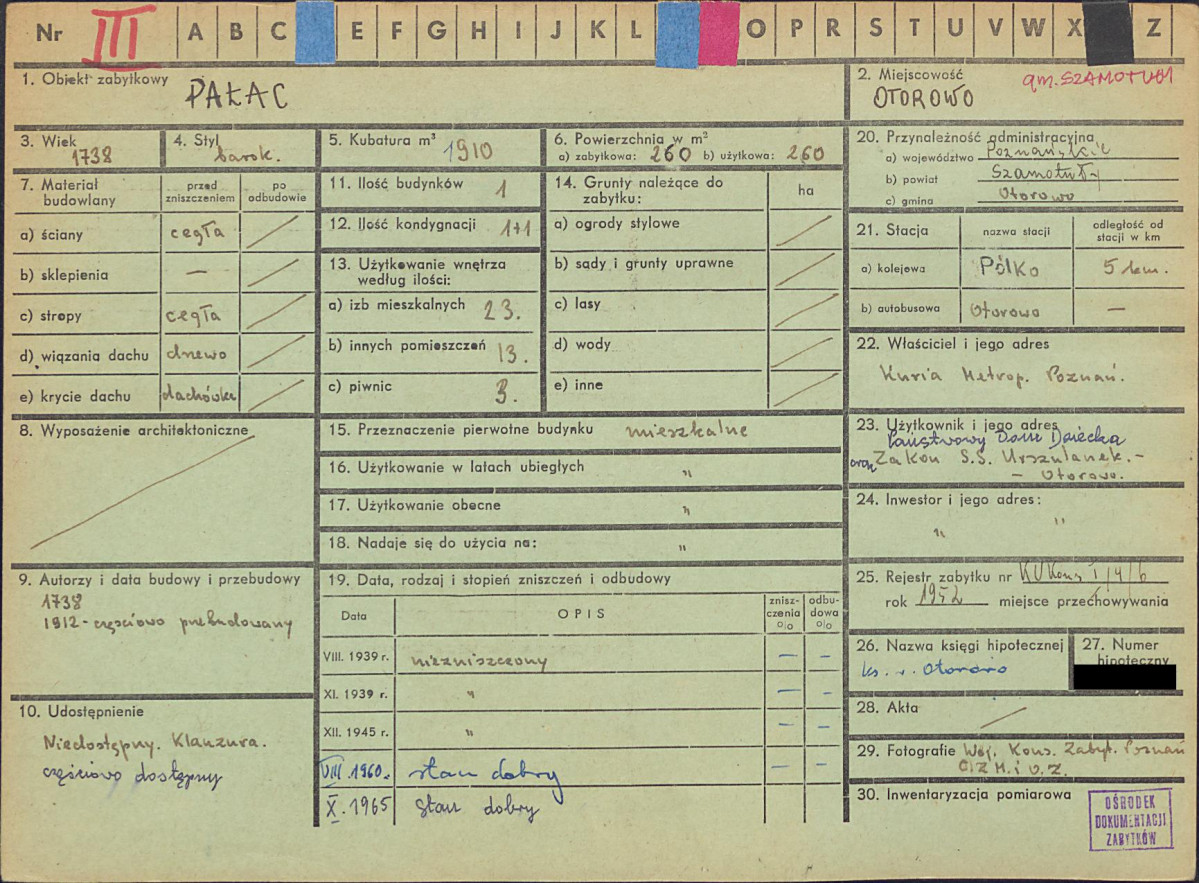 Nr III A B C E F G H I J K L O P R S T U V W X Z
1. Obiekt zabytkowy
PAŁAC
2. Miejscowość
gm. SZAMOTUŁY
OTOROWO
3. Wiek
1738
4. Styl
barok.
5. Kubatura m³ 1910
6. Powierzchnia w m²
a) zabytkowa: 260 b) użytkowa: 260
20. Przynależność administracyjna
a) województwo Poznańskie
b) powiat Szamotuły
c) gmina Otorowo
7. Materiał budowlany
przed zniszczeniem
po odbudowie
a) ściany cegła
b) sklepienia —
c) stropy cegła
d) wiązania dachu drewo
e) krycie dachu dachówka
11. Ilość budynków 1
12. Ilość kondygnacji 1+1
13. Użytkowanie wnętrza
według ilości:
a) izb mieszkalnych 23.
b) innych pomieszczeń 13.
c) piwnic 3.
14. Grunty należące do
zabytku:
ha
a) ogrody stylowe
b) sady i grunty uprawne
c) lasy
d) wody
e) inne
21. Stacja
nazwa stacji
odległość od
stacji w km
a) kolejowa Pólko 5 km.
b) autobusowa Otorowo —
22. Właściciel i jego adres
Kuria Metrop. Poznań.
8. Wyposażenie architektoniczne
15. Przeznaczenie pierwotne budynku mieszkalne
16. Użytkowanie w latach ubiegłych "
17. Użytkowanie obecne "
18. Nadaje się do użycia na: "
23. Użytkownik i jego adres
Państwowy Dom Dziecka
oraz Zakon S.S. Urszulanek. -
- Otorowo.
24. Inwestor i jego adres:
" "
9. Autorzy i data budowy i przebudowy
1738
1912 - częściowo przebudowany
19. Data, rodzaj i stopień zniszczeń i odbudowy
Data
OPIS
znisz-
czenia
o/o
odbu-
dowa
o/o
VIII. 1939 r. niezniszczony — –
XI. 1939 r. " — –
XII. 1945 r. " – –
VIII. 1960. stan dobry — –
X. 1965 stan dobry
25. Rejestr zabytku nr
rok 1952 miejsce przechowywania
26. Nazwa księgi hipotecznej
ks. w. Otorowo
27. Numer
hipoteczny
28. Akta
10. Udostępnienie
Niedostępny. Klauzura.
częściowo dostępny
29. Fotografie Woj. Kons. Zabyt. Poznań
C.Z.M. i O.Z.
30. Inwentaryzacja pomiarowa
OŚRODEK
DOKUMENTACJI
ZABYTKÓW